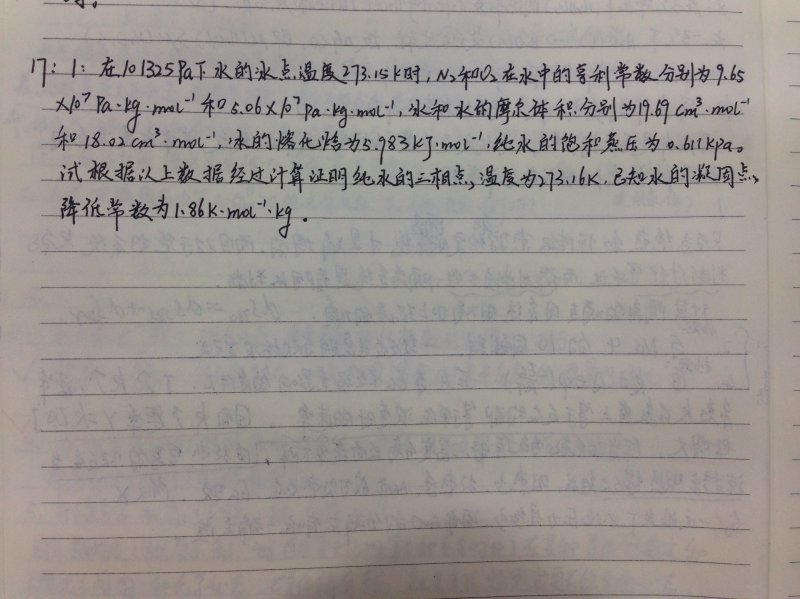 17: 1: 在101325Pa下水的冰点,温度273.15K时, N₂和O₂在水中的亨利常数分别为9.65
×10⁷Pa·kg·mol⁻¹和5.06×10⁷Pa·kg·mol⁻¹,冰和水的摩尔体积分别为19.69cm³·mol⁻¹
和18.02cm³·mol⁻¹,冰的熔化焓为5.983KJ·mol⁻¹,纯水的饱和蒸压为0.611kPa。
试根据以上数据经过计算证明纯水的三相点,温度为273.16K,已知水的凝固点,
降低常数为1.86K·mol⁻¹·kg。